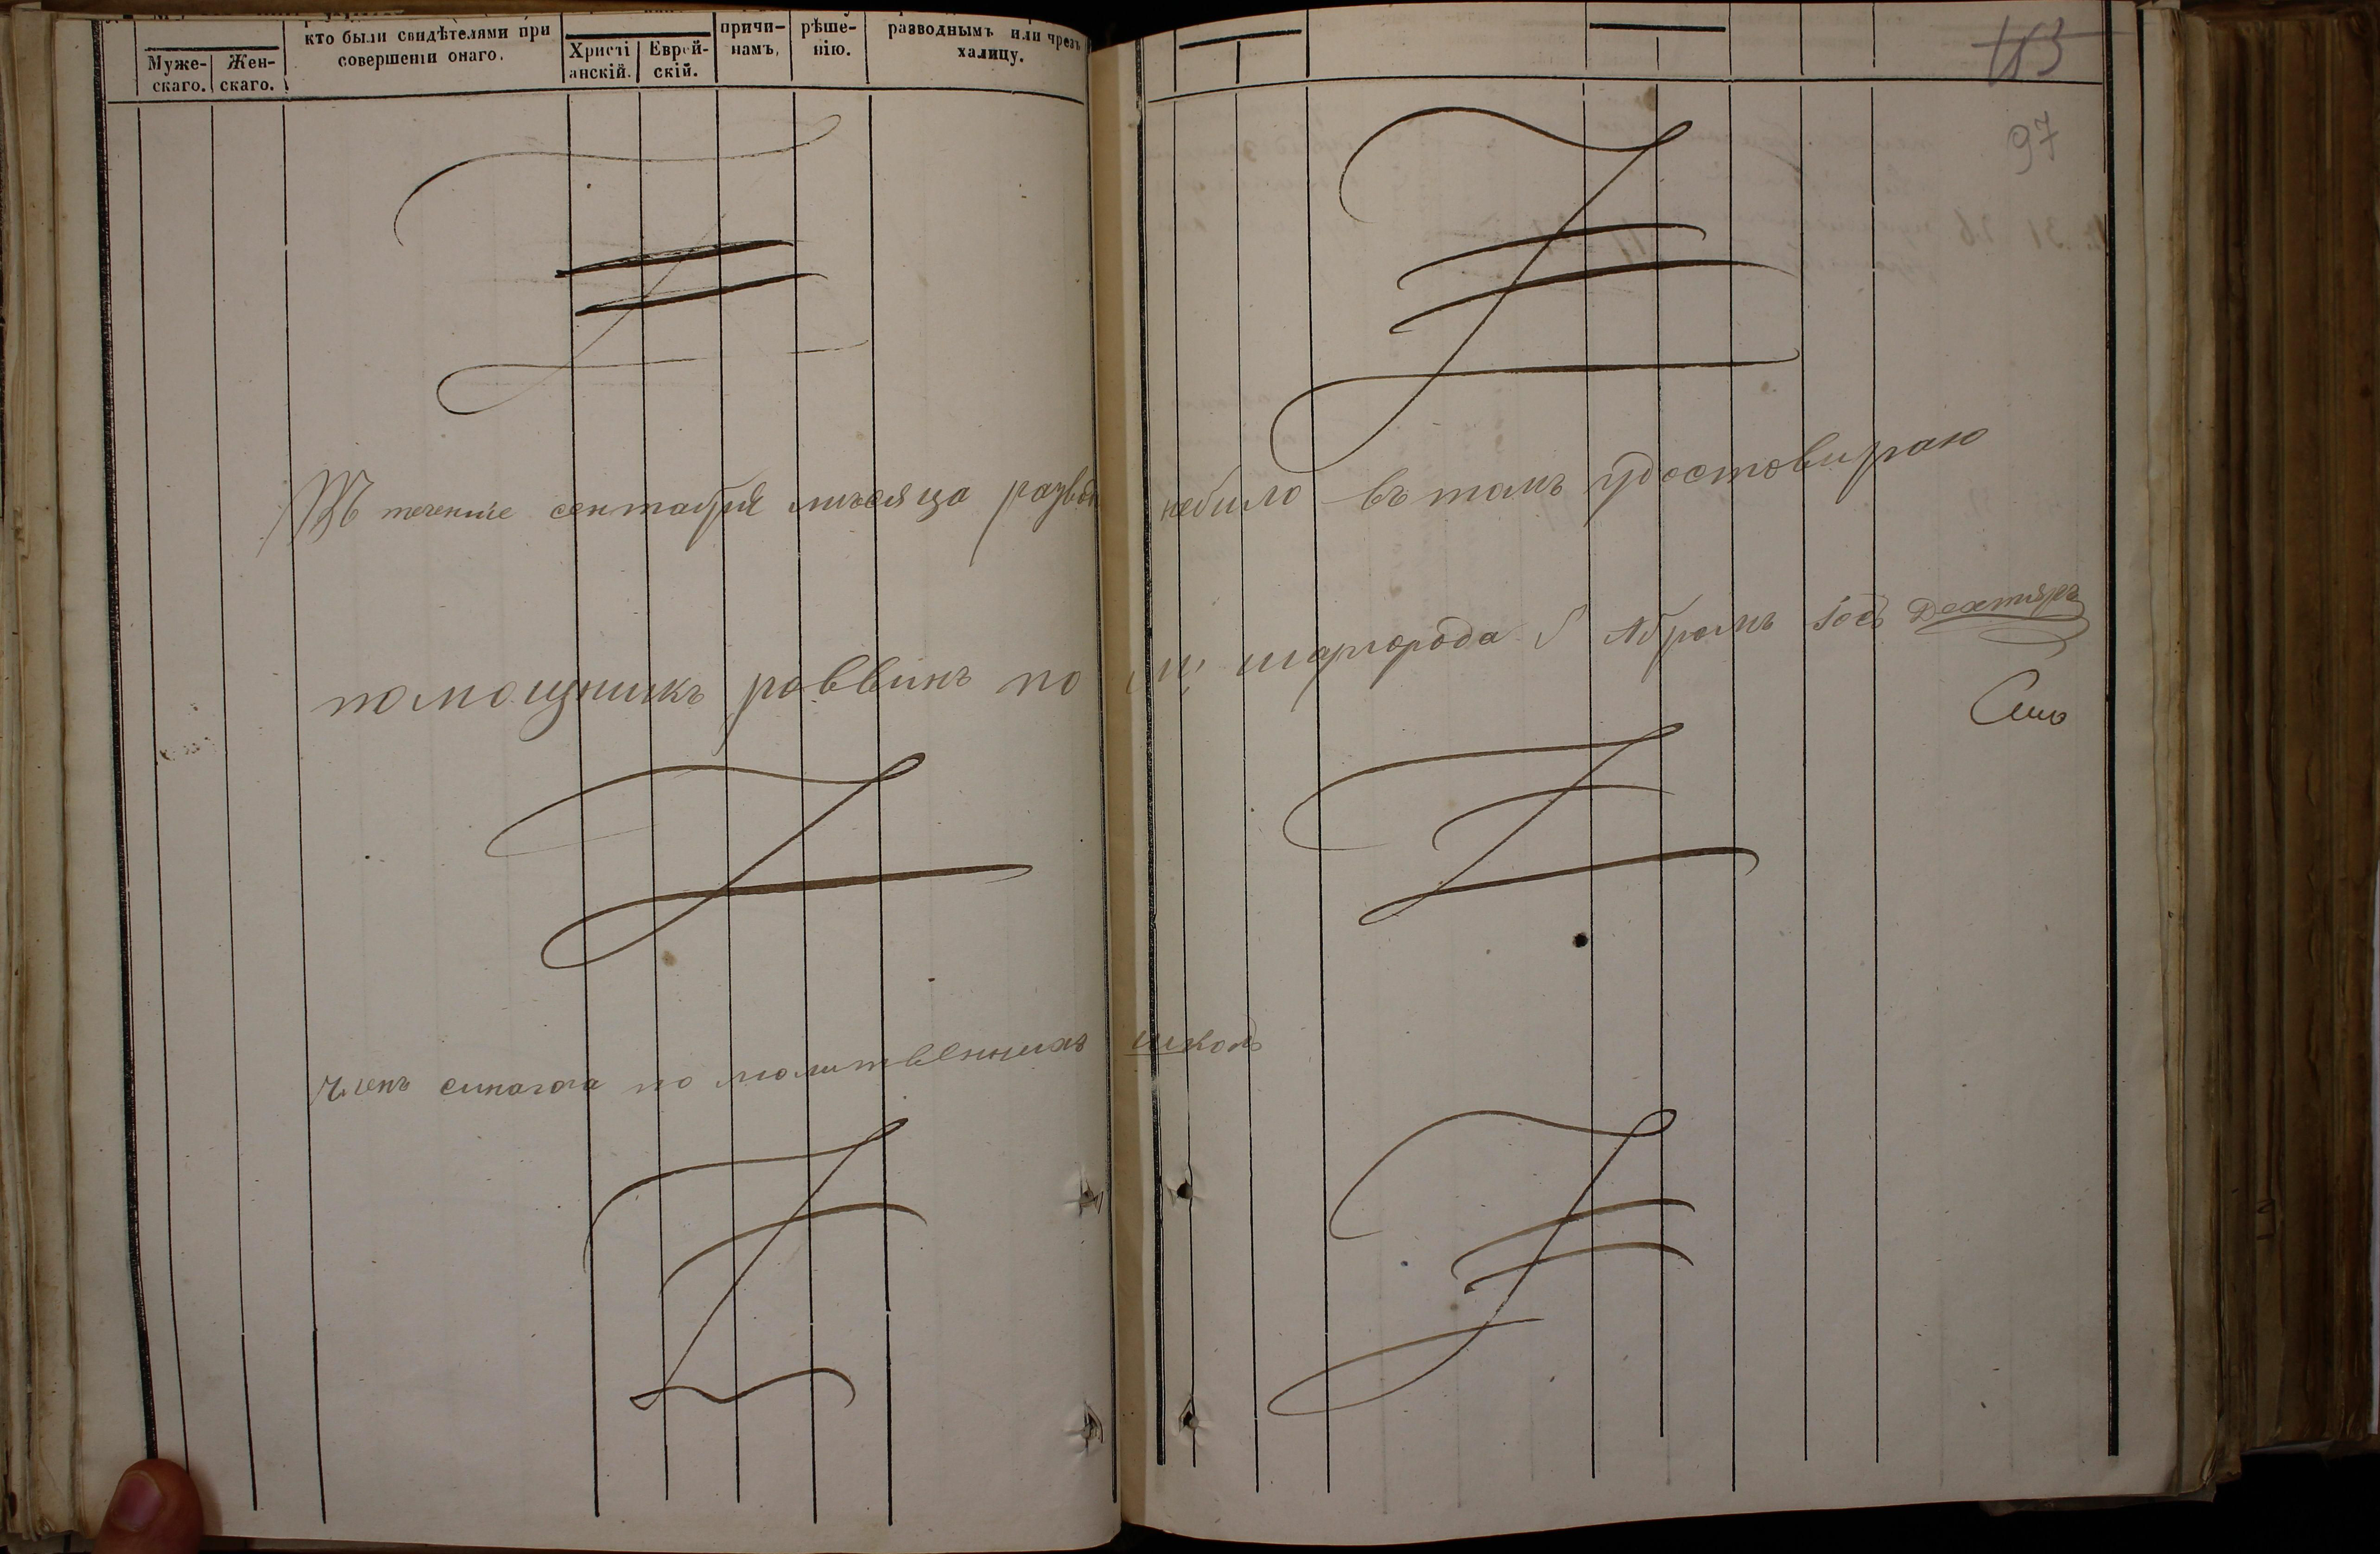 кто были свидѣтелями при совершеніи онаго.
Муже-скаго.
Жен-скаго.
Христі анскій.
Еврей-скій.
причи-намъ,
рѣше-нію.
разводнымъ или чрезъ халицу.
113
97
Въ теченіе сентабря мѣсяца разводъ небыло въ томъ удостовираю
помощникъ раввинъ по м: шаргорода Абрамъ Іось Дехтяръ
Членъ синагога по молитвеннихъ школъ